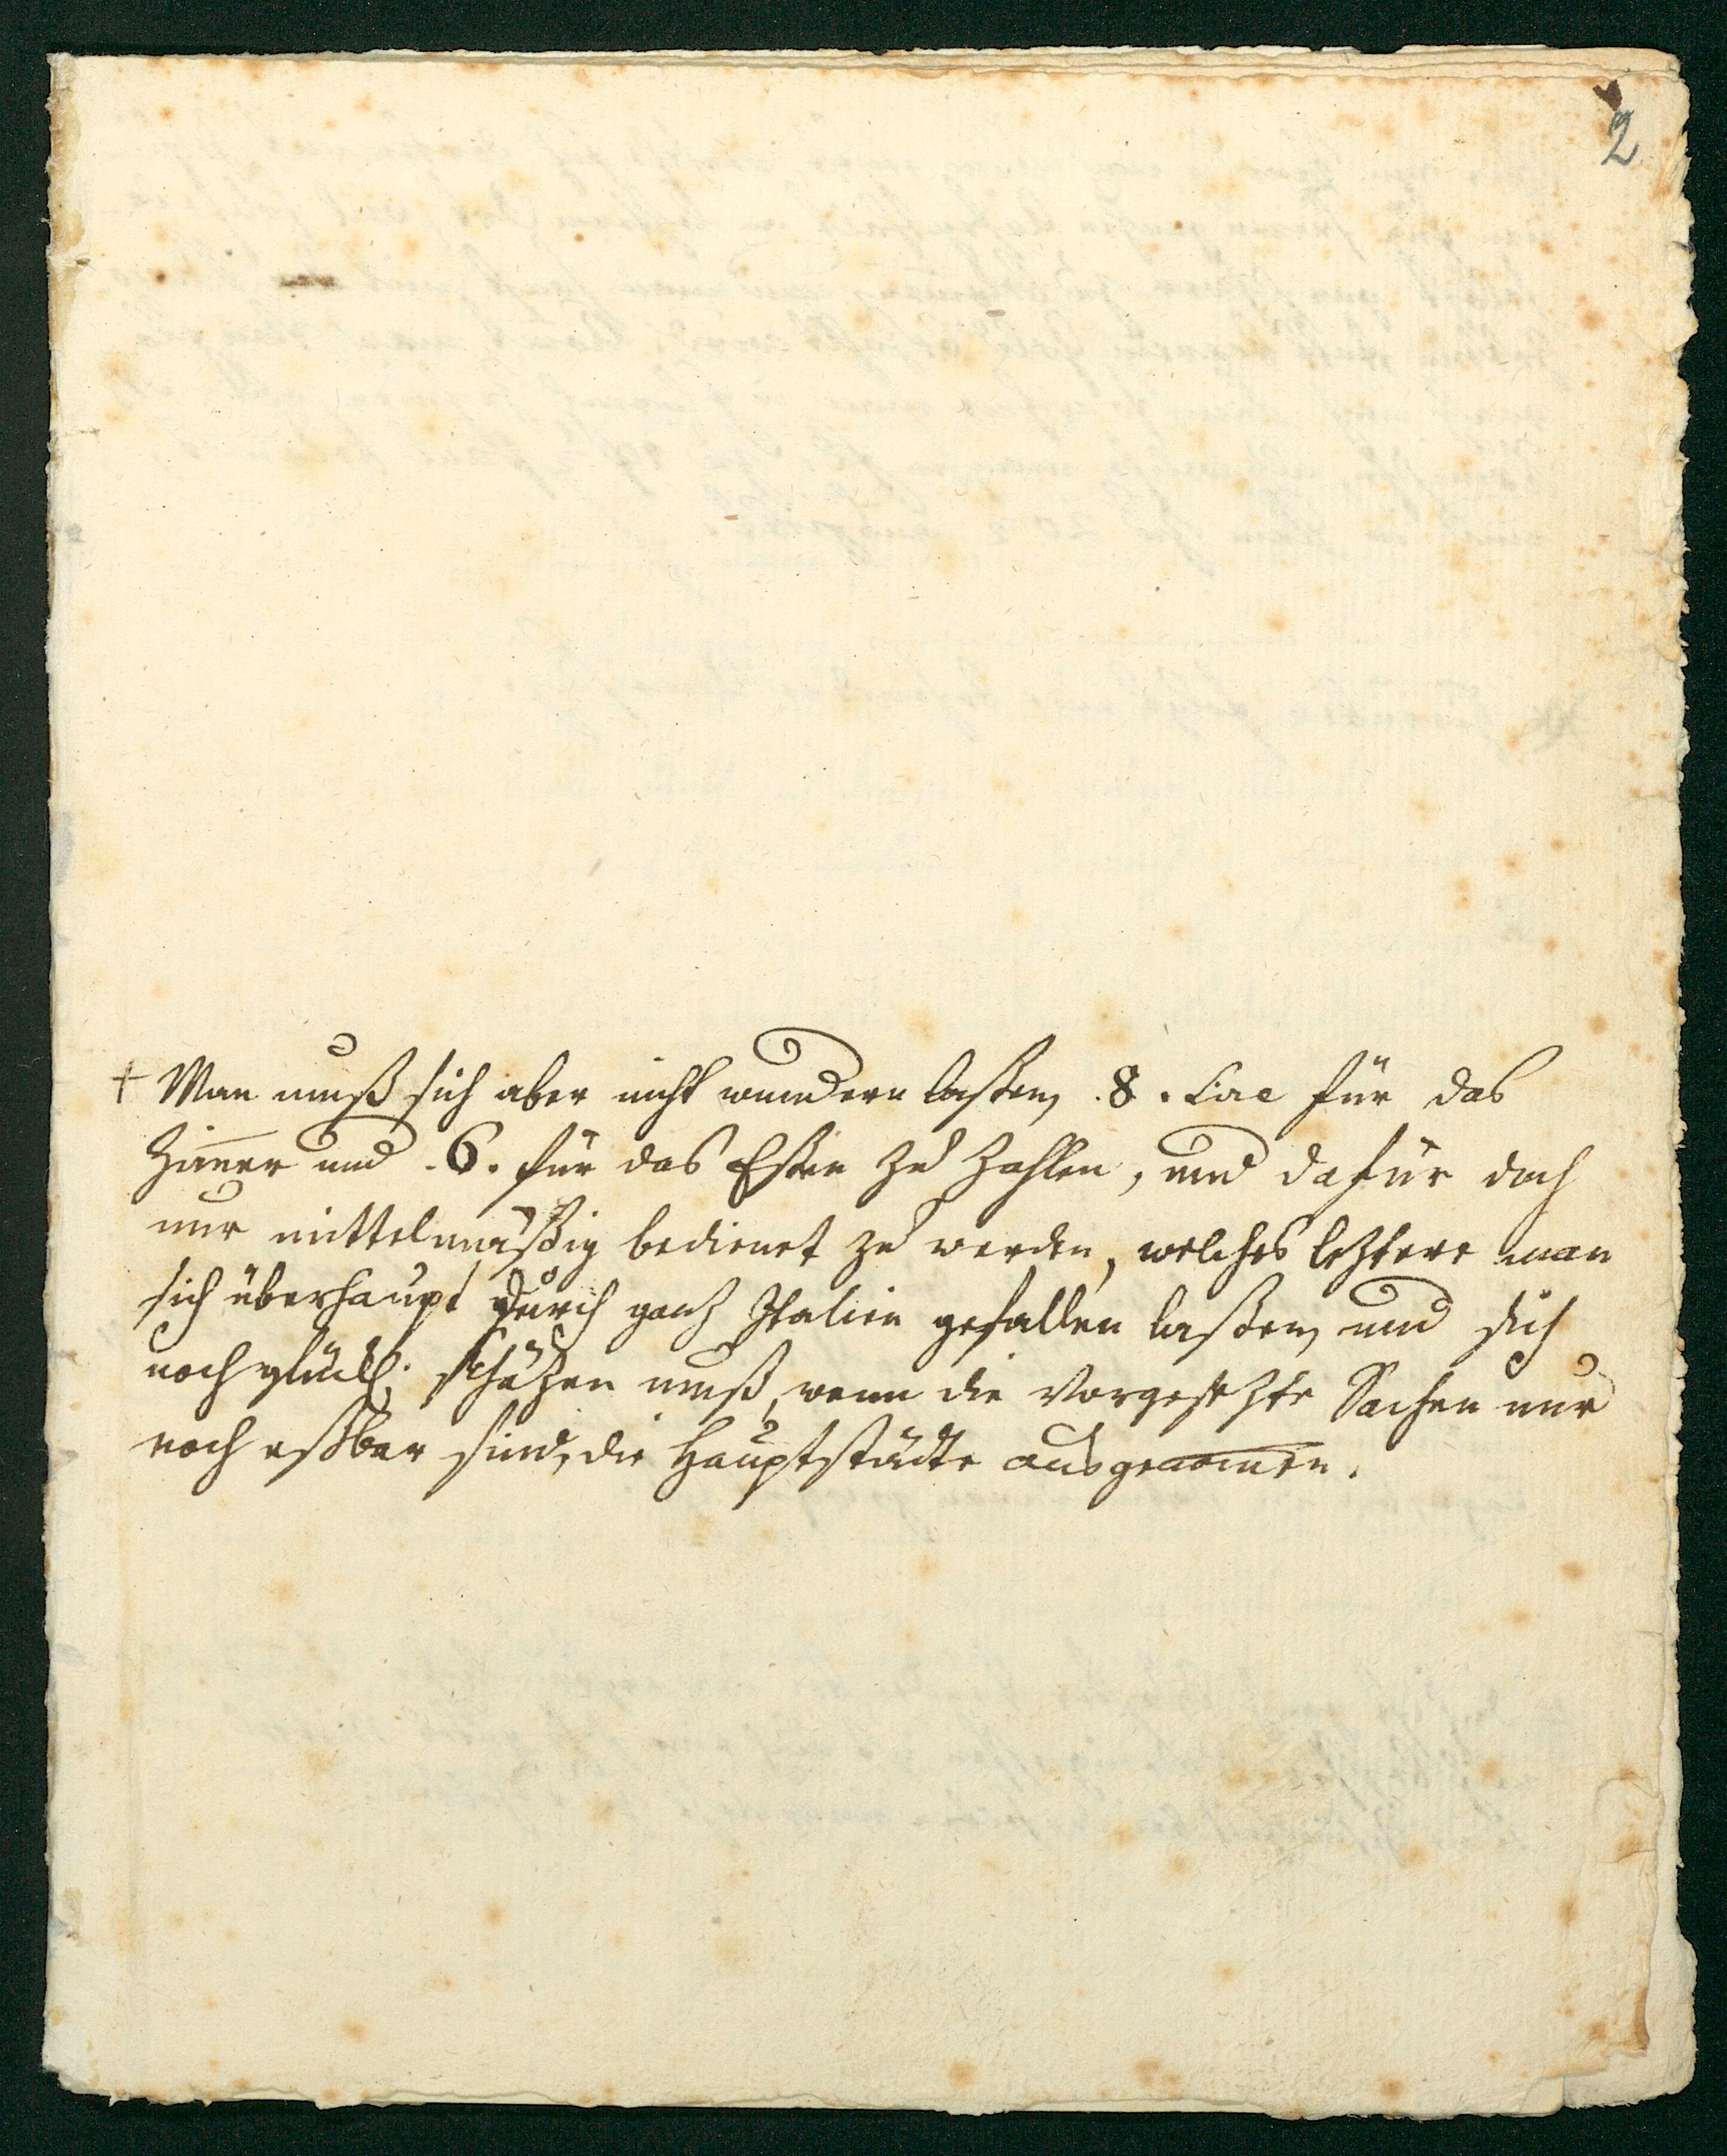 2
+ Man muß sich aber nicht wundern laßen, .8. Lire für das
Zim̅er und .6. für das Eßen zu zahlen, und dafür doch
nur mittelmäßig bedienet zu werden, welches leztere man
sich überhaupt durch ganz Italien gefallen laßen, und sich
noch glückl: schäzen muß, wenn die vorgesezte Sachen nur
noch eßbar sind, die Hauptstädte ausgenom̅en.